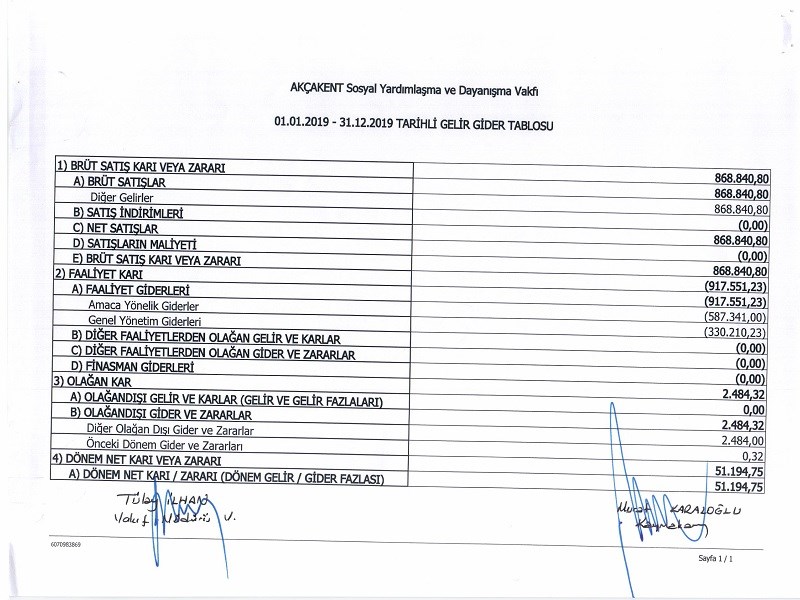 AKÇAKENT Sosyal Yardımlaşma ve Dayanışma Vakfı
01.01.2019 - 31.12.2019 TARİHLİ GELİR GİDER TABLOSU
1) BRÜT SATIŞ KARI VEYA ZARARI 868.840,80
A) BRÜT SATIŞLAR 868.840,80
Diğer Gelirler 868.840,80
B) SATIŞ İNDİRİMLERİ (0,00)
C) NET SATIŞLAR 868.840,80
D) SATIŞLARIN MALİYETİ (0,00)
E) BRÜT SATIŞ KARI VEYA ZARARI 868.840,80
2) FAALİYET KARI (917.551,23)
A) FAALİYET GİDERLERİ (917.551,23)
Amaca Yönelik Giderler (587.341,00)
Genel Yönetim Giderleri (330.210,23)
B) DİĞER FAALİYETLERDEN OLAĞAN GELİR VE KARLAR (0,00)
C) DİĞER FAALİYETLERDEN OLAĞAN GİDER VE ZARARLAR (0,00)
D) FİNASMAN GİDERLERİ (0,00)
3) OLAĞAN KAR 2.484,32
A) OLAĞANDIŞI GELİR VE KARLAR (GELİR VE GELİR FAZLALARI) 0,00
B) OLAĞANDIŞI GİDER VE ZARARLAR 2.484,32
Diğer Olağan Dışı Gider ve Zararlar 2.484,00
Önceki Dönem Gider ve Zararları 0,32
4) DÖNEM NET KARI VEYA ZARARI 51.194,75
A) DÖNEM NET KARI / ZARARI (DÖNEM GELİR / GİDER FAZLASI) 51.194,75
Tülay İLHAN Murat KARALOĞLU
Vakıf Müdürü V. Kaymakam
6070983869
Sayfa 1 / 1